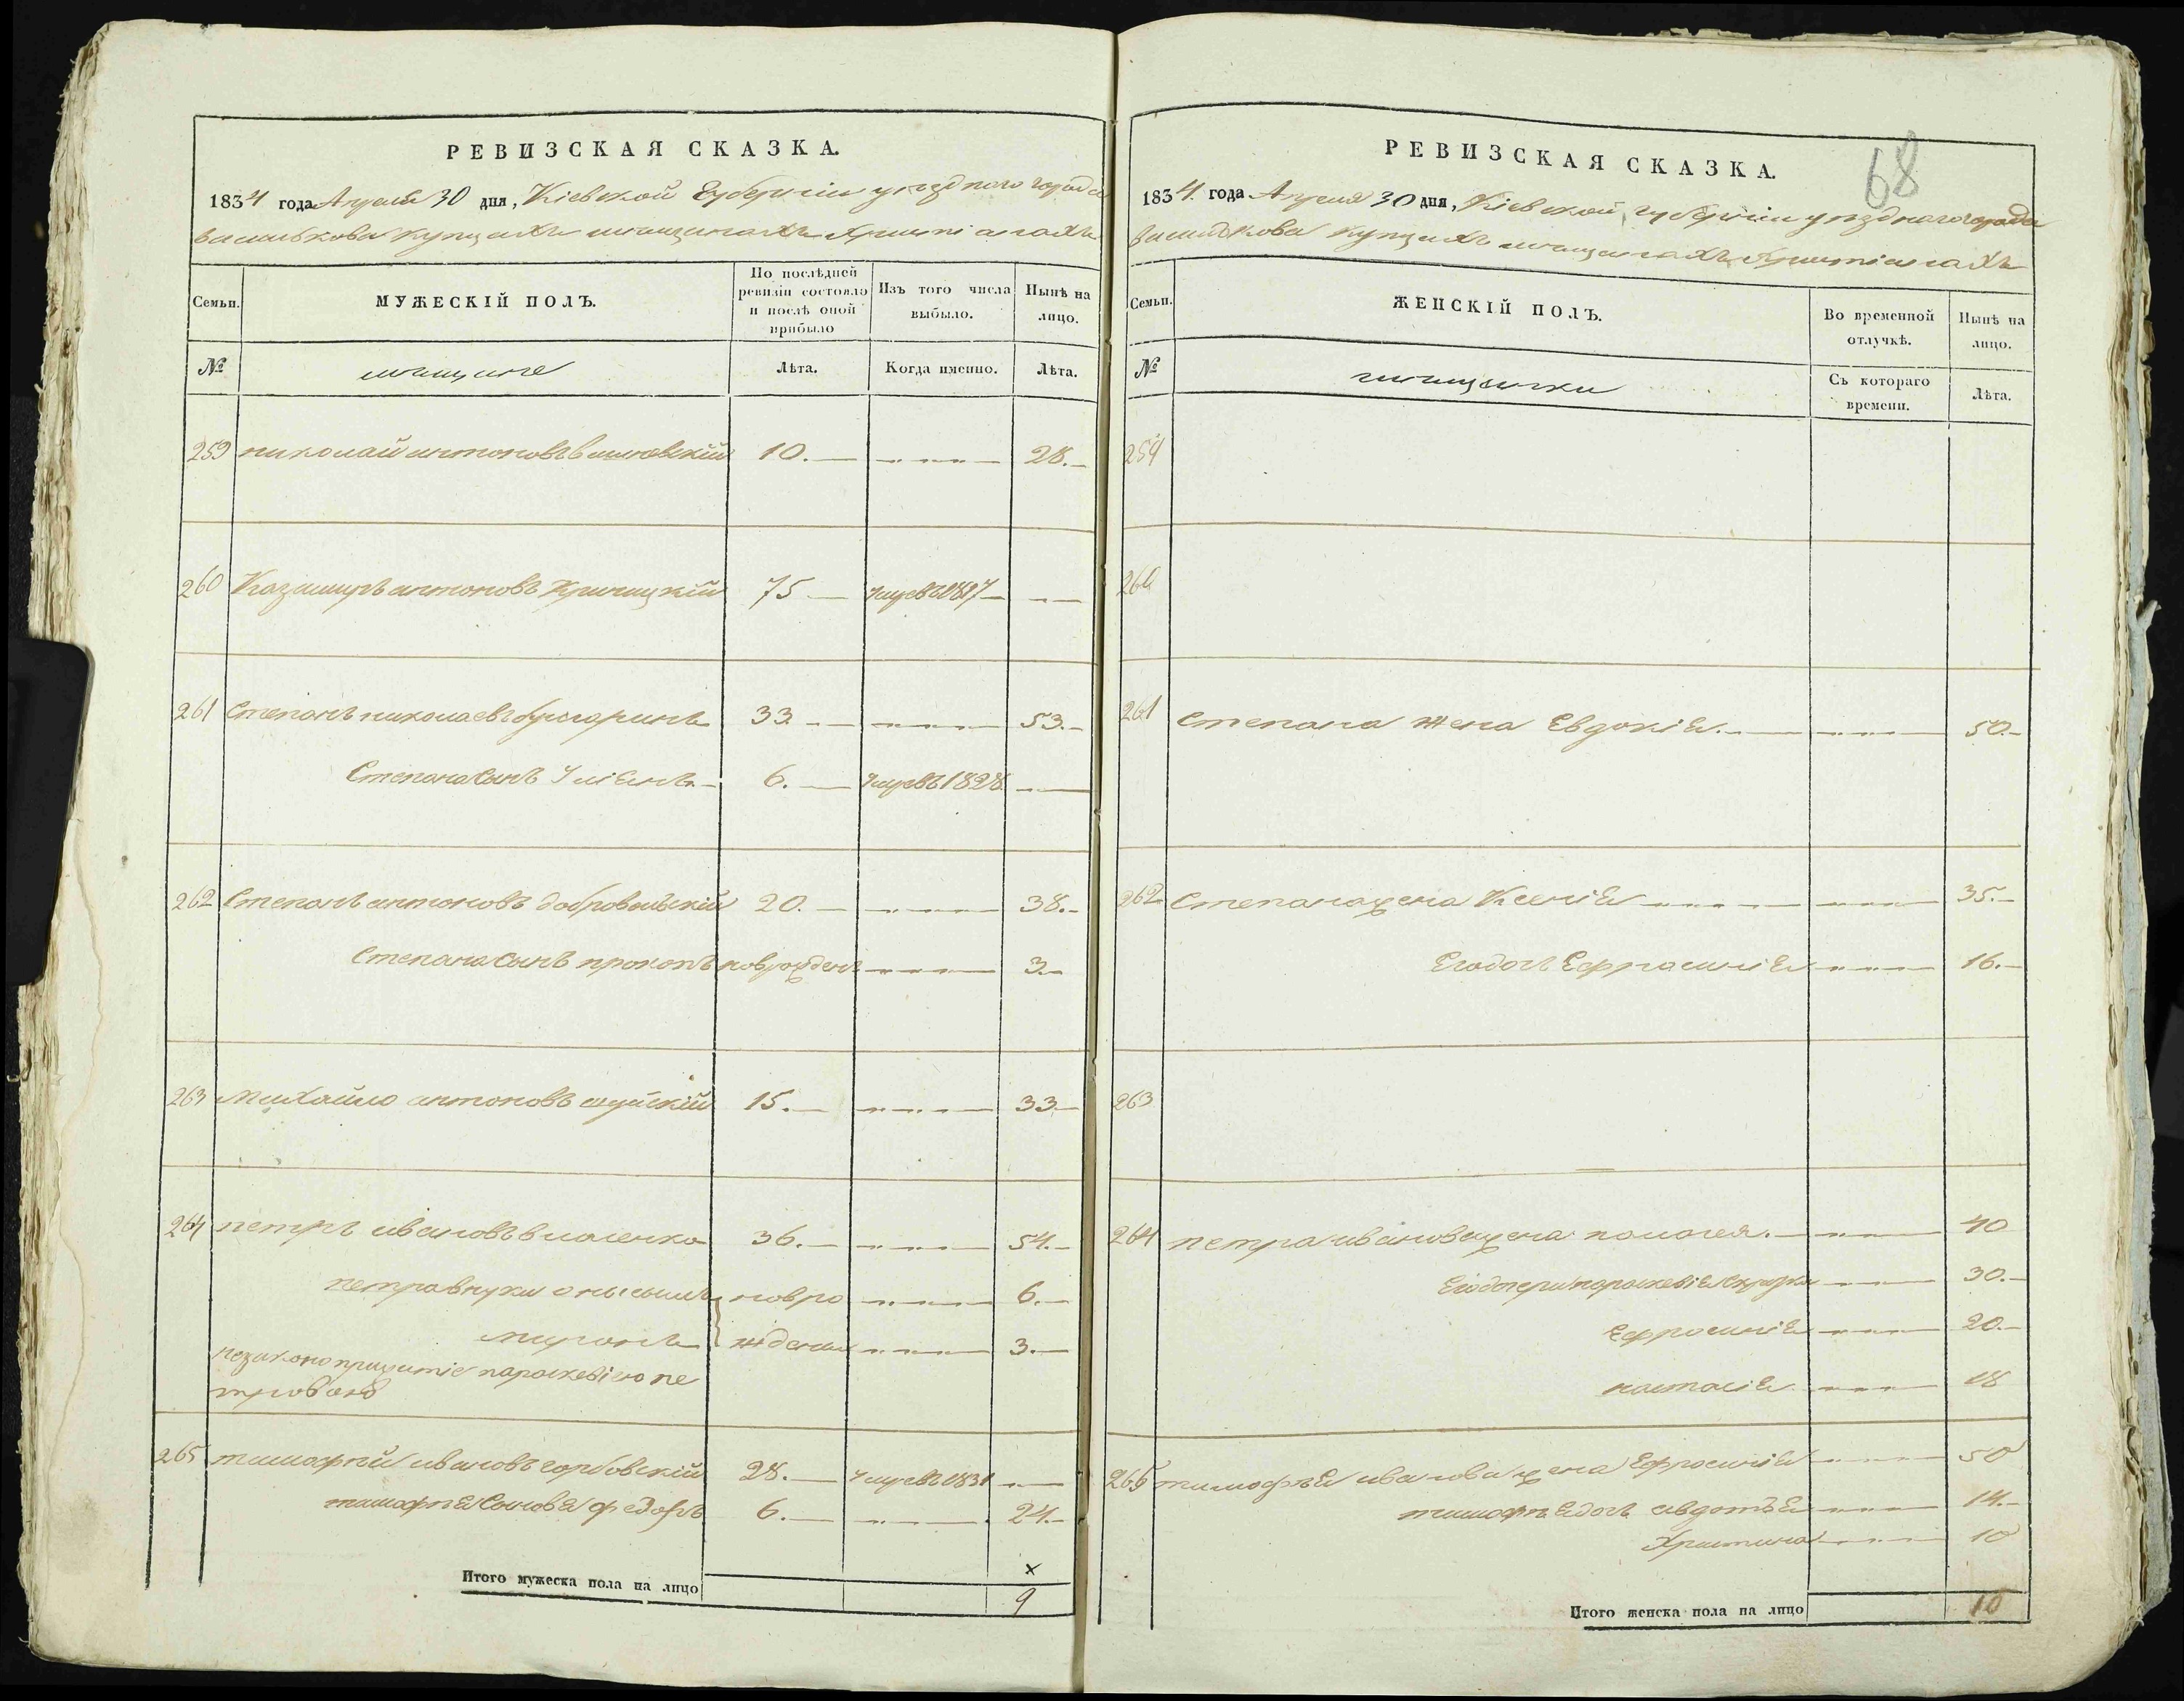 РЕВИЗСКАЯ СКАЗКА.
1834 года Апреля 30 дня, Кіевской Губерніи уѣзднаго города
Василькова купцахъ мещанахъ христіанахъ
Семьи.
МУЖЕСКІЙ ПОЛЪ.
По послѣдней ревизіи состояло и послѣ оной прибыло
Изъ того числа выбыло.
Нынѣ на лицо.
№
мещане
Лѣта.
Когда именно.
Лѣта.
259 николай антоновъ 10. 28.
260 Казимиръ антоновъ Криницкій 75 умре въ 1817
261 Степанъ николаевъ булгаринъ 33 53.
Степана сынъ Уліянъ 6. умре въ 1828
262 Степанъ антоновъ добровольскій 20. 38.
Степана сынъ прокопъ новрожденъ 3.
263 Михайло антоновъ шуйскій 15. 33
264 петръ ивановъ власенко 36. 54.
петра внуки онысымъ новро 6.
миронъ жденны 3.
незаконо прижитіе параскевіею пе
тровою
265 тимофѣй ивановъ горбовскій 28. умре въ 1831
тимофѣя сыновя федоръ 6. 24.
Итого мужеска пола на лицо
х
9
68
РЕВИЗСКАЯ СКАЗКА.
1834. года Апреля 30 дня, Кіевской губерніи уѣзднаго города
Василькова купцахъ мещанахъ христіанахъ
Семьи.
ЖЕНСКІЙ ПОЛЪ.
Во временной отлучкѣ.
Нынѣ на лицо.
№
мещанки
Съ котораго времени.
Лѣта.
259
260
261 степана жена Евдокія. 50.
262 Степана жена Ксенія 35.
Егодочь Ефрасинія 16.
263
264 петра иванова жена полагея. 40
Егодочери параскевія 30.
Ефросинія 20.
настасія 18
265 тимофѣя иванова жена Ефросинія 50
тимофѣя дочь авдотья 14.
Христина 10
Итого женска пола на лицо
10